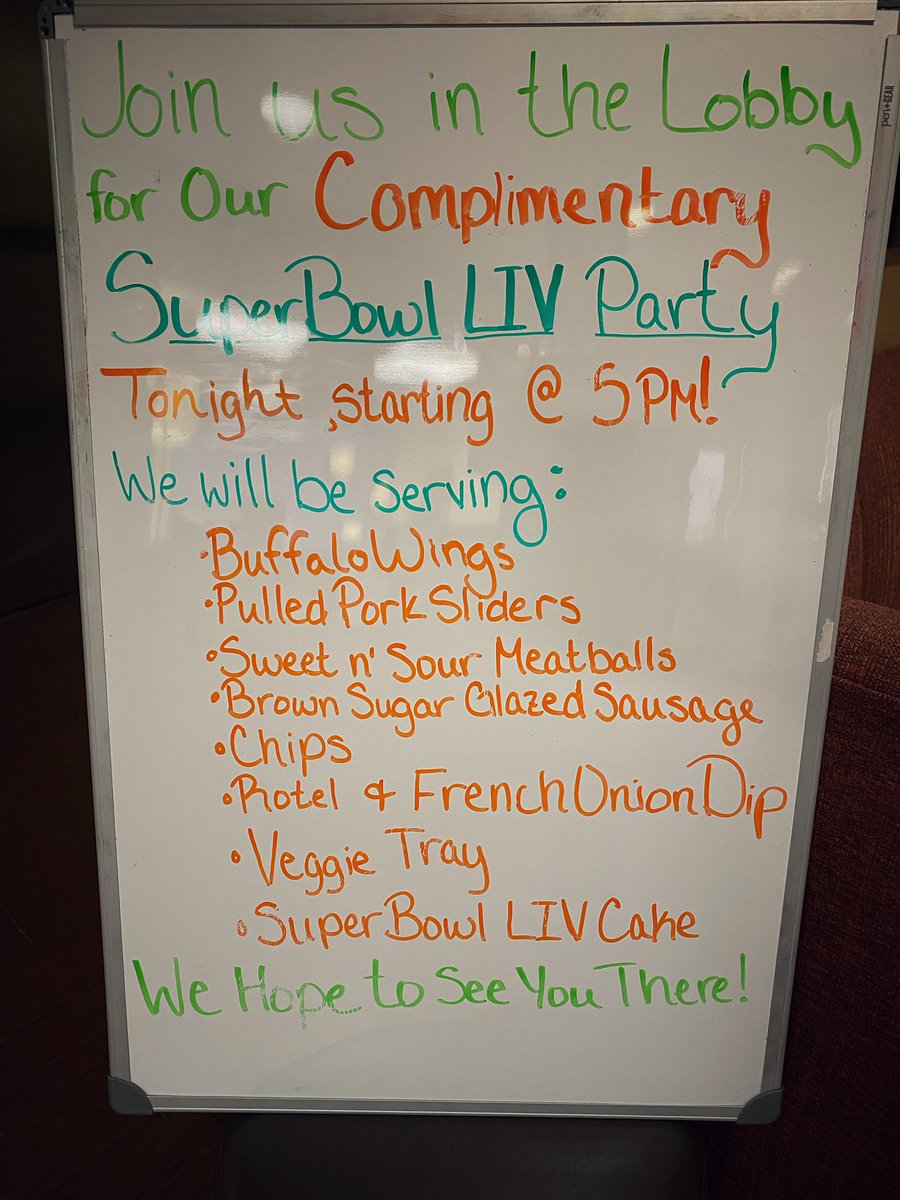 Join us in the Lobby
for Our Complimentary
SuperBowl LIV Party
Tonight, starting @ 5PM!
We will be serving:
·Buffalo Wings
·Pulled Pork Sliders
·Sweet n' Sour Meatballs
·Brown Sugar Glazed Sausage
·Chips
·Rotel & French Onion Dip
·Veggie Tray
·SuperBowl LIV Cake
We Hope to See You There!
pen+GEAR